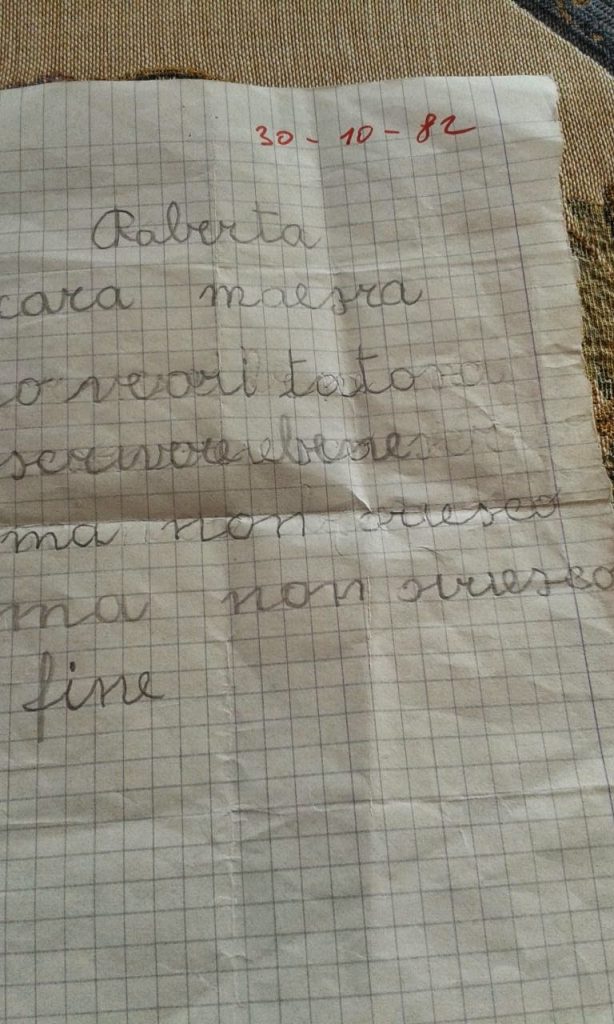 30-10-82
Raberta
cara maesra
o veori tato
scrivere ebene
ma non sriesco
ma non sriesco
fine